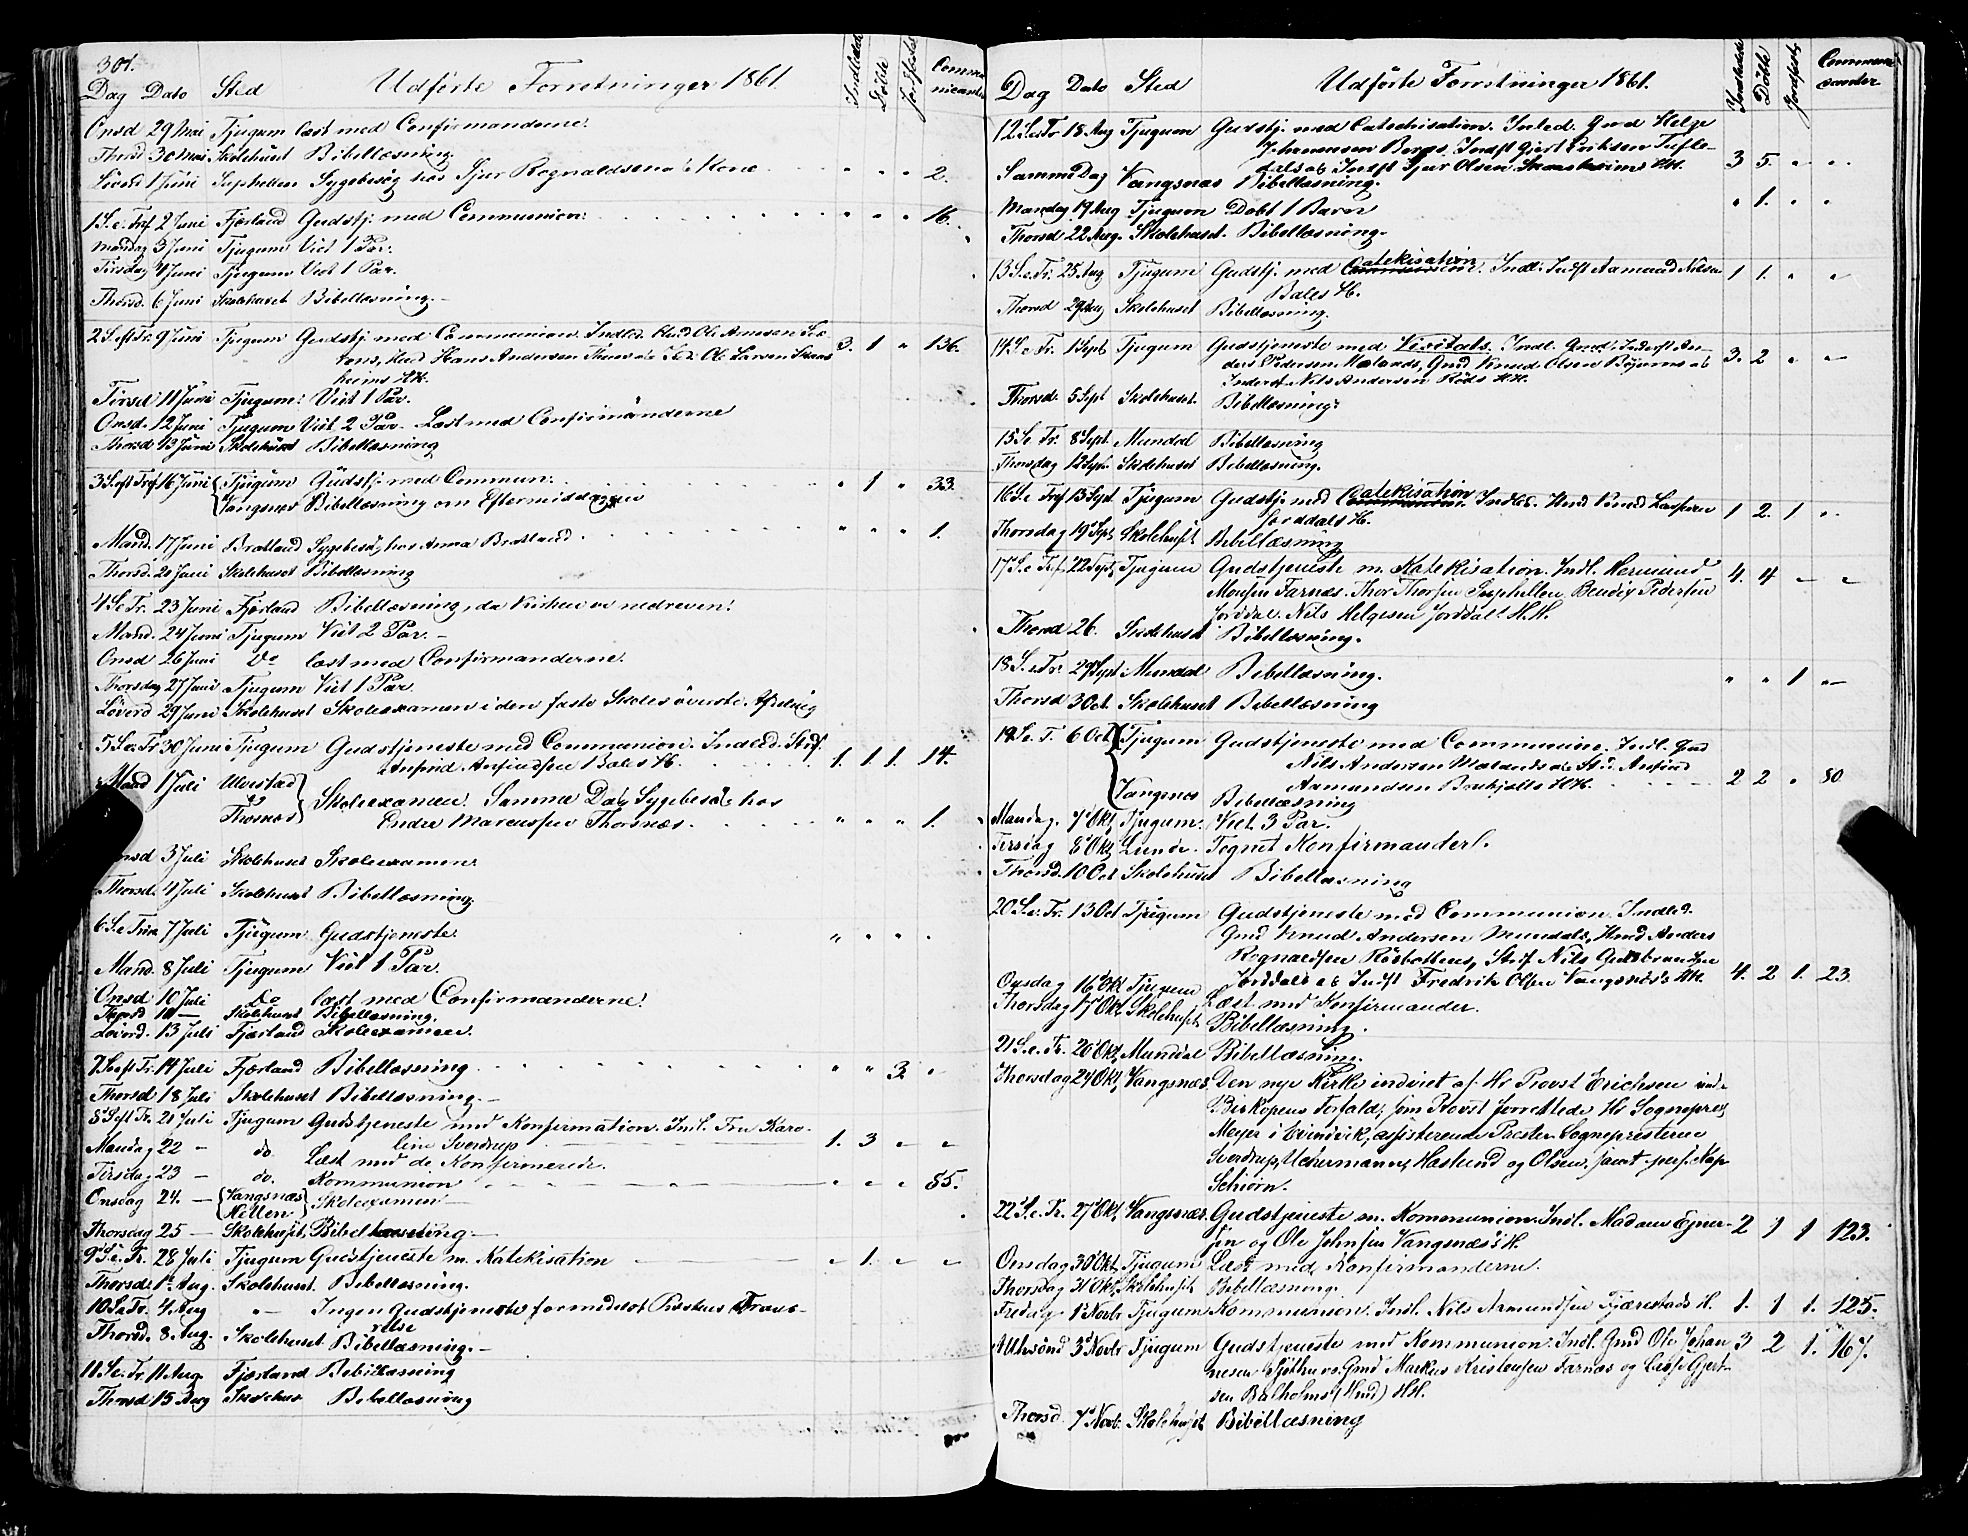 301.
Dag Dato Sted Udførte Forretninger 1861. Indledede Døbte Jordfæstede Communicanter
Onsd 29 Mai Tjugum læst med Confirmanderne.
Thorsd 30 Mai Skolehuset Bibellæsning
Løverd 1 Juni Suphellen Sygebesøg hos Sjur Rognaldsens Kone " " " 2.
1 S. e. Trf 2 Juni Fjærland Gudstj. med Communion. " " " 16.
Mandag 3 Juni Tjugum Viet 1 Par.
Tirsdag 4 Juni Tjugum Viet 1 Par.
Thorsd. 6 Juni Skolehuset Bibellæsning.
2 S. eft Tr. 9 Juni Tjugum Gudstj med Communion. Indled. Ole Arnesen
Hans Andersen Ole Larsen 3. 1 " 136.
HH.
Tirsd 11 Juni Tjugum. Viet 1 Par.
Onsd. 12 Juni Tjugum Viet 2 Par. Læst med Confirmanderne
Thorsd 13 Juni Skolehuset Bibellæsning
3 S eft Tref 16 Juni Tjugum Gudstj. med Commun: " 1 " 33.
Vangsnæs Bibellæsning om Eftermiddagen
Mand. 17 Juni Brætland Sygebesøg hos Anna Brætland " " " 1.
Thorsd. 20 Juni Skolehuset Bibellæsning
4 S e Tr. 23 Juni Fjærland Bibellæsning, da Kirken er nedreven.
Mand. 24 Juni Tjugum Viet 2 Par.
Onsd 26 Juni Do læst med Confirmanderne.
Thorsdag 27 Juni Tjugum Viet 1 Par.
Løverd 29 Juni Skolehuset Skoleexamen i den faste Skoles øverste Afdeling
5 S e. Tr 30 Juni Tjugum Gudstjeneste med Communion. Indled.
Anfind Anfindsen Bales H. 1. 1 1. 14.
Mand 1 Juli Ulvestad
Thorsnæs Skoleexamen. Samme Dag Sygebesøg hos
Endre Marcussen Thorsnæs. " " " 1.
Onsd 3 Juli Skolehuset Skoleexamen
Thorsd. 4 Juli Skolehuset Bibellæsning
6 S. e Trin 7 Juli Tjugum Gudstjeneste. " " " "
Mand. 8 Juli Tjugum Viet 1 Par.
Onsd 10 Juli Do læst med Confirmanderne.
Thorsd 11 — Skolehuset Bibellæsning.
Løverd. 13 Juli Fjærland Skoleexamen.
7 S eft Tr. 14 Juli Fjærland Bibellæsning " " 3. "
Thorsd 18 Juli Skolehuset Bibellæsning.
8 S eft Tr. 21 Juli Tjugum Gudstjeneste med Konfirmation. Inl. Fru Karo-
line Sverdrup 1. 3 " "
Mandag 22 — do Læst med de Konfirmerede.
Tirsdag 23 — do. Kommunion " " " 85.
Onsdag 24. — Vangsnæs
Hellen Skoleexamen
Thorsdag 25 — Skolehuset Bibellæsning
9 S. e. Tr. 28 Juli Tjugum Gudstjeneste m. Katekisation " 1. " "
Thorsd. 1 Aug. Skolehuset. Bibellæsning.
10 S. e Tr. 4. Aug " Ingen Gudstjeneste formedelst Præstens Fravæ-
relse
Thorsd. 8 Aug. Skolehuset Bibellæsning.
11. S. e. Tr. 11 Aug. Fjærland Bibellæsning
Thorsd 15 Aug Skolehus Bibellæsning
Dag Dato Sted Udførte Forretninger 1861. Indledede Døbte Jordfæst. Communicanter
12 S. e Tr 18 Aug Tjugum Gudstj. med Catechisation. Inled. Gmd Helge
Johannesen Bergs. Indst Gjert Eriksen
Indst Sjur Olsen HH. 3 5. " "
Samme Dag Vangsnæs Bibellæsning.
Mandag 19 Aug Tjugum Døbt 1 Barn " 1. " "
Thorsd 22 Aug. Skolehuset. Bibellæsning.
13 S e. Tr. 25 Aug Tjugum Gudstj. med Catekisation. Indl. Indst Aamund Nilsen
Bales H. 1 1. " "
Thorsd 29 Aug Skolehuset Bibellæsning.
14 S. e. Tr. 1 Sept Tjugum Gudstjeneste med Visitats. Indl. Gmd. Inderst An-
ders Pedersen Mælands, Gmd Knud Olsen Bøjums og
Inderst Nils Andersen Røds HH. 3. 2 " "
Thorsd. 5 Sept Skolehuset. Bibellæsning.
15 S e. Tr. 8 Sept. Mundal Bibellæsning
Thorsdag 12 Sept. Skolehuset Bibellæsning.
16 S e Tref 15 Sept. Tjugum Gudstj. med Catekisation. Indled. Hmd Knud
Jorddals H. 1 2. 1 "
Thorsdag 19 Sept Skolehuset Bibellæsning
17 S. e Tref. 22 Sept. Tjugum Gudstjeneste m. Katekisation. Indl. Hermund
Monsen Farnæs. Thor Thorsen Suphellen, Bendix Pedersen
Jorddal. Nils Helgesen Jorddal's HH. 4. 4 " "
Thorsd 26. Skolehuset Bibellæsning.
18 S. e. Tr. 29 Sept Mundal Bibellæsning. " " 1 "
Thorsd 3 Oct. Skolehuset Bibellæsning
19 S. e. T. 6 Oct Tjugum Gudstjeneste med Communion. Indl. Gmd
Nils Andersen Mælands og Anfind
Aamundsen HH. 2 2 " 80
Vangsnæs Bibellæsning
Mandag. 7 Okt. Tjugum. Viet 3 Par.
Tirsdag 8 Okt. Lunde. Tegnet Konfirmander.
Thorsd. 10 Oct Skolehuset Bibellæsning
20 S. e. Tr. 13 Oct Tjugum Gudstjeneste med Communion. Indled.
Gmd Knud Andersen Mundals, Hmd Anders
Rognaldsen Nils Gudbrandsen
Jorddals og Indst Fredrik Olsen Vangsnæs's HH. 4. 2 1. 23.
Onsdag 16 Okt Tjugum Læst med Konfirmander.
Thorsdag 17 Okt. Skolehuset Bibellæsning.
21 S. e. Tr. 20 Okt. Mundal Bibellæsning.
Thorsdag 24 Okt. Vangsnæs. Den nye Kirke indviet af Hr Provst Erichsen ved
Biskopens Forfald; som Provst forrettede Hr Sognepræst
Meyer i Evindvik, assisterende Præster Sognepresterne
Sverdrup, Uchermann, Haslund og Olsen, samt pers. Kap.
Schiørn.
22 S. e. Tr. 27 Okt. Vangsnæs. Gudstjeneste m. Kommunion. Indl. Madam
og Ole Johnsen Vangsnæs's H. 2 1 1 123.
Onsdag 30 Okt. Tjugum Læst med Konfirmanderne.
Thorsdag 31 Okt. Skolehuset Bibellæsning.
Fredag 1 Novbr Tjugum Kommunion. Indl. Nils Aamundsen Fjærestads H. 1. 1 1. 125.
Allehsønd 3 Novbr Tjugum Gudstjeneste med Kommunion. Indl. Gmd Ole Johan-
nesen Gmd Markus Kristensen Farnæs og Gjert-
sen Balholms (Hmd) HH. 3 2 1. 167.
Thorsd. 7 Novb. Skolehuset Bibellæsning